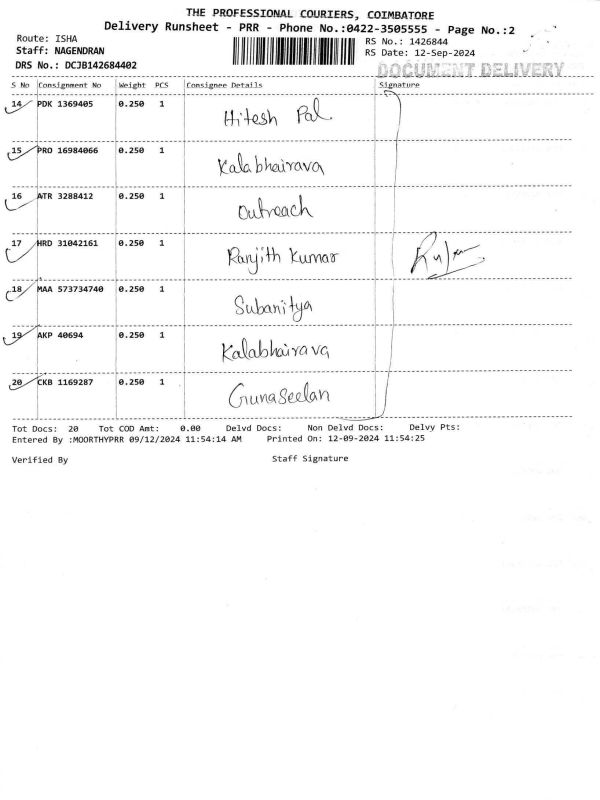 THE PROFESSIONAL COURIERS, COIMBATORE
Delivery Runsheet - PRR - Phone No.:0422-3505555 - Page No.:2
Route: ISHA
RS No.: 1426844
Staff: NAGENDRAN
RS Date: 12-Sep-2024
DRS No.: DCJB142684402
DOCUMENT DELIVERY
S No Consignment No Weight PCS Consignee Details Signature
14 PDK 1369405 0.250 1 Hitesh Pal
15 PRO 16984066 0.250 1 Kalabhairava
16 ATR 3288412 0.250 1 Outreach
17 HRD 31042161 0.250 1 Ranjith Kumar
18 MAA 573734740 0.250 1 Subanitya
19 AKP 40694 0.250 1 Kalabhairava
20 CKB 1169287 0.250 1 Gunaseelan
Tot Docs: 20 Tot COD Amt: 0.00 Delvd Docs: Non Delvd Docs: Delvy Pts:
Entered By :MOORTHYPRR 09/12/2024 11:54:14 AM Printed On: 12-09-2024 11:54:25
Verified By Staff Signature